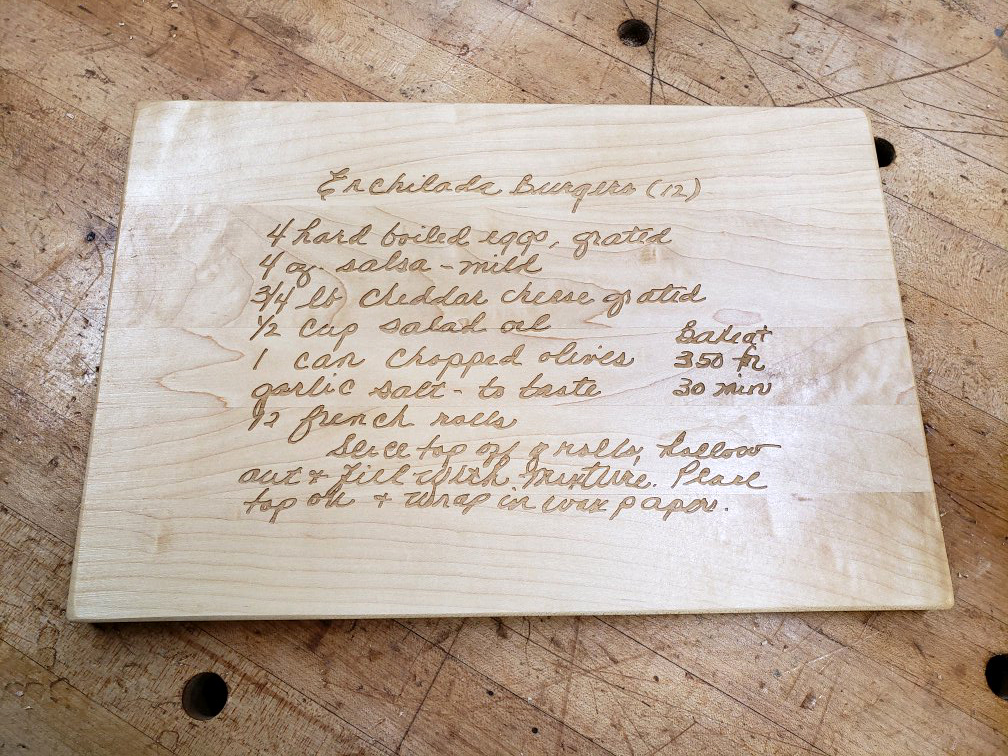 Enchilada Burgers (12)
4 hard boiled eggs, grated
4 oz. salsa - mild
3/4 lb cheddar cheese grated
1/2 cup salad oil
1 can chopped olives
garlic salt - to taste
12 french rolls
Bake at
350 fr
30 min
Slice top off rolls, hollow
out + fill with mixture. Place
top on + wrap in wax paper.